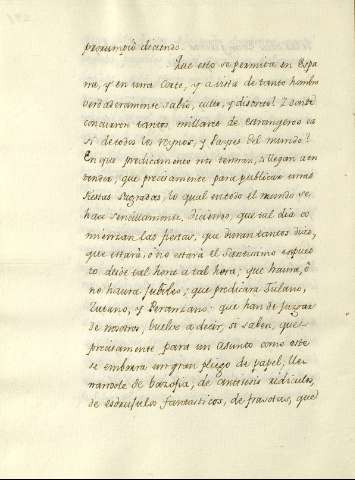 prorumpió diciendo.
Que esto se permita en Espa
ña, y en una Corte, y a vista de tanto hombre
verdaderamente sabio, culto, y discreto! Y donde
concurren tantos millares de Estrangeros ca
si de todos los Reynos, y Payses del mundo!
En que predicamento nos tendran, si llegan a en
tender, que precisamente para publicar unas
fiestas sagradas, lo qual en todo el mundo se
hace sencillamente, diciendo, que tal dia co
mienzan las fiestas, que duran tantos dias,
que estará, ò no estará el Sacramento expues
to desde tal hora á tal hora; que havrá, ò
no havra Jubileo; que predicará Fulano,
Zutano, y Perenzano: que han de juzgar
de nosotros, buelvo a decir, si saben, que
precisamente para un asunto como este
se embarra un gran pliego de papel, lle
nandole de bazofia, de antitesis ridiculos,
de esdrujulos fantasticos, de frasotas, que